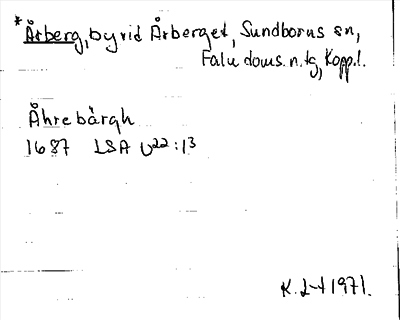 *Årberg, by vid Årberget, Sundborns sn,
Falu doms. n. tg, Kopp. l.
Åhrebärgh
1687 LSA U22:13
1971.